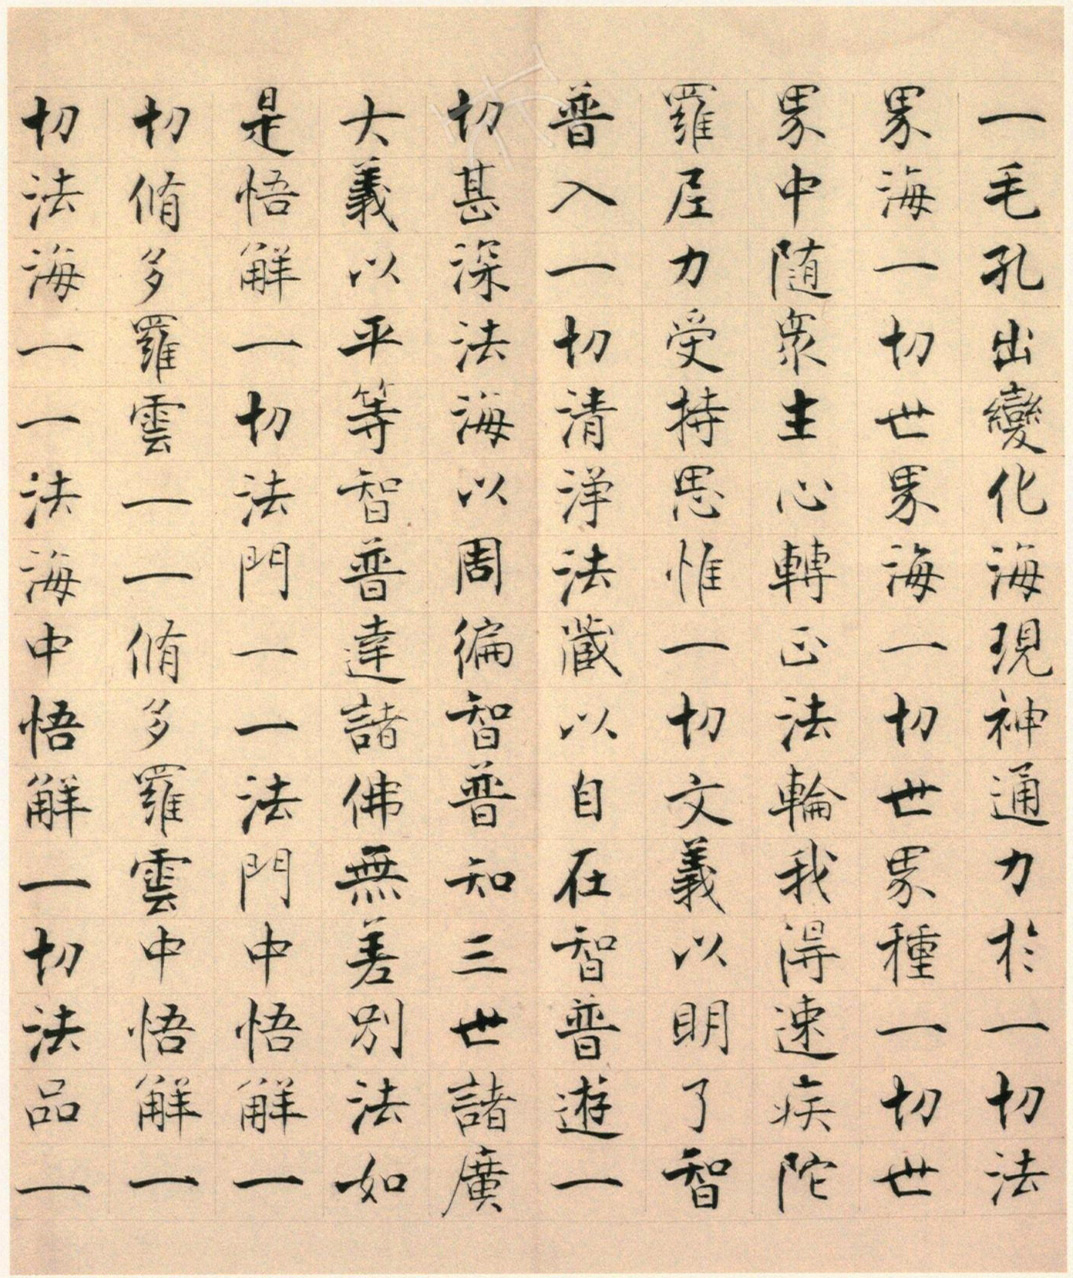 一毛孔出變化海現神通力於一切法
界海一切世界海一切世界種一切世
界中随衆生心轉正法輪我得速疾陀
羅尼力受持思惟一切文義以明了智
普入一切清淨法藏以自在智普遊一
切甚深法海以周徧智普知三世諸廣
大義以平等智普達諸佛無差別法如
是悟解一切法門一一法門中悟解一
切脩多羅雲一一脩多羅雲中悟解一
切法海一一法海中悟解一切法品一